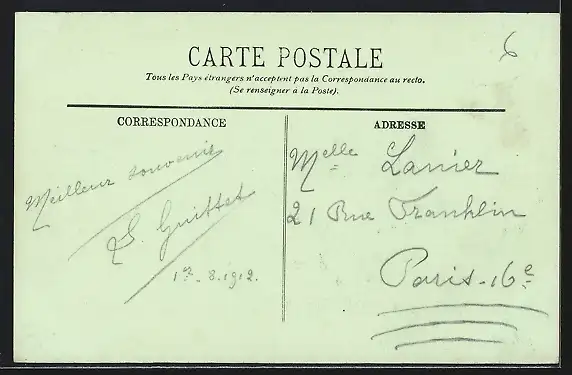 6
CARTE POSTALE
Tous les Pays étrangers n'acceptent pas la Correspondance au recto.
(Se renseigner à la Poste).
CORRESPONDANCE
ADRESSE
Meilleur souvenir
Guittet
8.1912.
Melle Lanier
21 Rue Franklin
Paris-16e